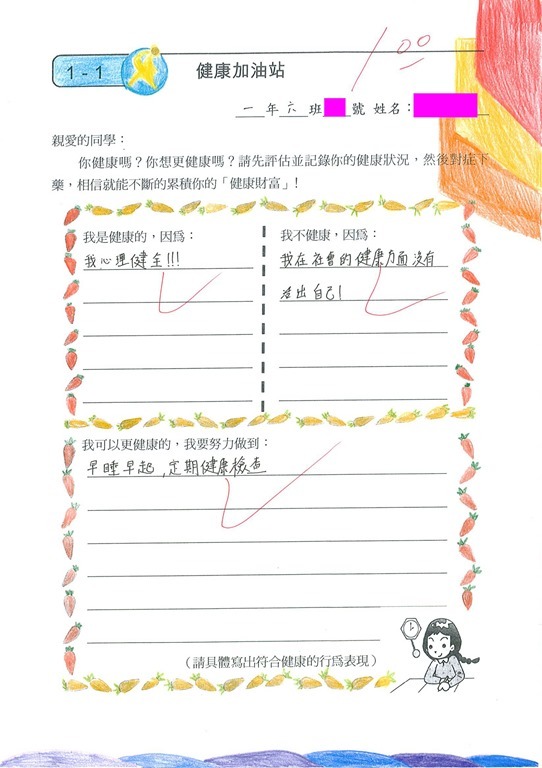 100
1-1
健康加油站
一年六班 號 姓名：
親愛的同學：
你健康嗎？你想更健康嗎？請先評估並記錄你的健康狀況，然後對症下
藥，相信就能不斷的累積你的「健康財富」！
我是健康的，因為：
我心理健全!!!
我不健康，因為：
我在社會的健康方面沒有
活出自己!
我可以更健康的，我要努力做到：
早睡早起,定期健康檢查
（請具體寫出符合健康的行為表現）